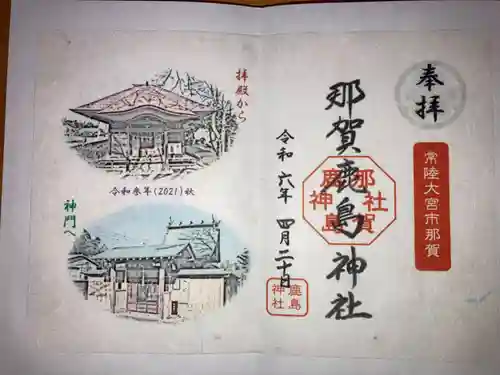 奉拝
常陸大宮市那賀
那賀鹿島神社
那賀
鹿島
神社
令和六年 四月二十日
鹿島
神社
拝殿から
令和参年(2021)秋
神門へ